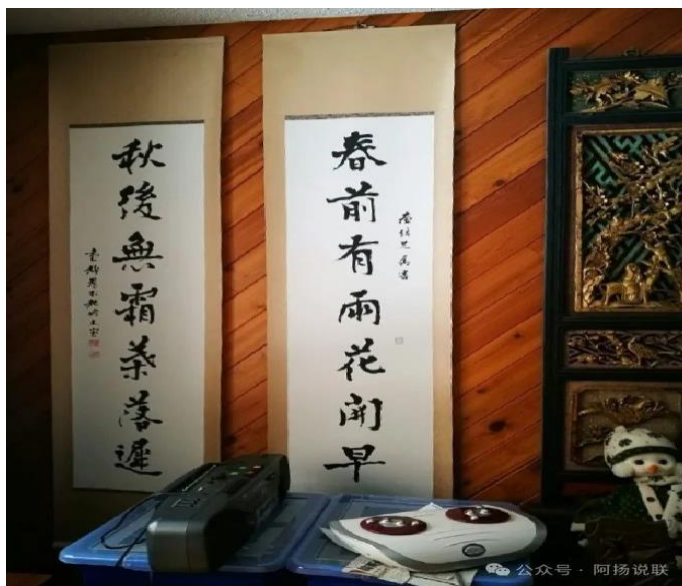 春前有雨花開早
秋後無霜葉落遲
公众号·阿扬说联